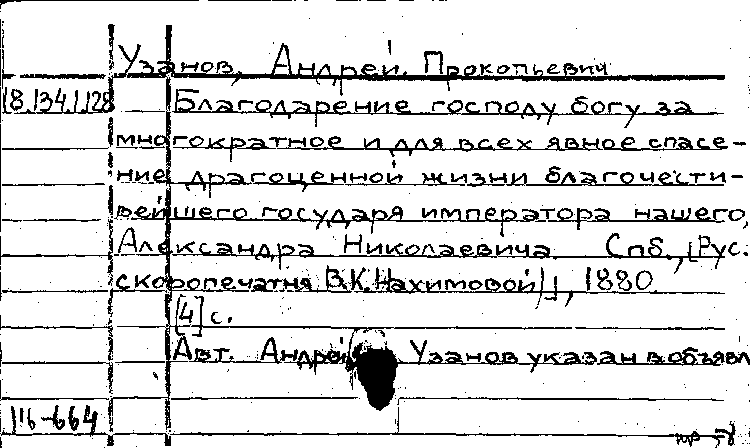 Узанов, Андрей Прокопьевич
18.134.1.128 Благодарение господу богу за
многократное и для всех явное спасе-
ние драгоценной жизни благочести-
вейшего государя императора нашего,
Александра Николаевича. Спб., [Рус.
скоропечатня В.К. Нахимовой], 1880.
[4] с.
Авт. Андрей Узанов указан в объявл